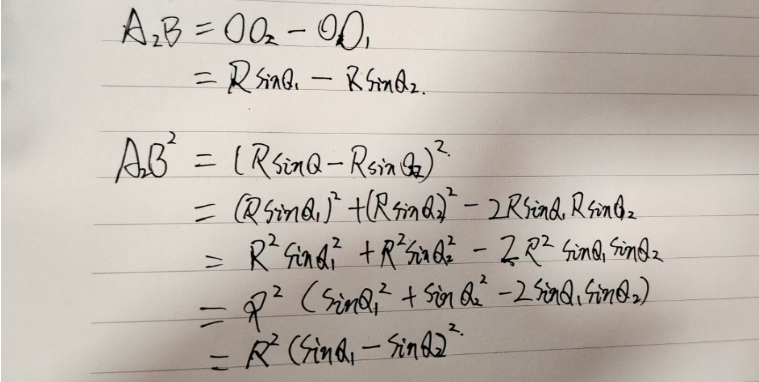 A₂B = OO₂ - OO₁
= R sinθ₁ - R sinθ₂.
A₂B² = (R sinθ - R sinθ₂)².
= (R sinθ₁)² + (R sinθ₂)² - 2R sinθ₁ R sinθ₂
= R² sinθ₁² + R² sinθ₂² - 2R² sinθ₁ sinθ₂
= R² (sinθ₁² + sinθ₂² - 2 sinθ₁ sinθ₂)
= R² (sinθ₁ - sinθ₂)².